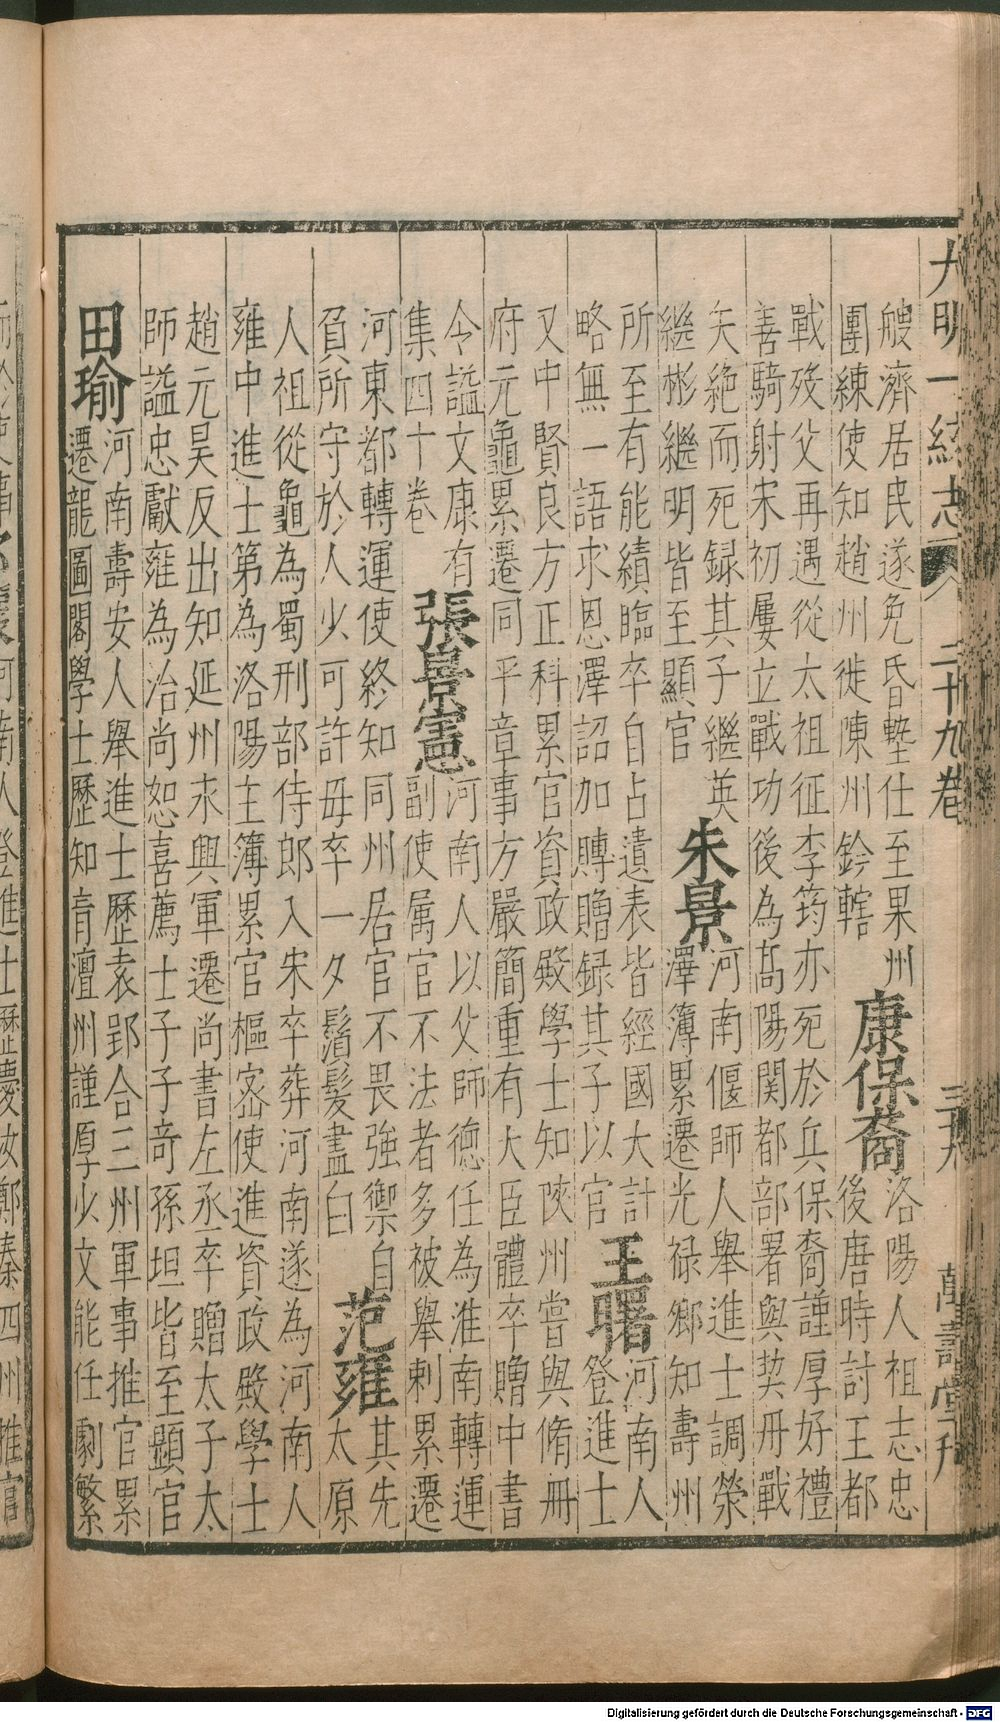 大明一統志 二十九卷 三九 萬壽堂刊
艘濟居民遂免昏墊仕至果州
團練使知趙州徙陳州鈐轄
康保裔
洛陽人祖志忠
後唐時討王都
戰歿父再遇從太祖征李筠亦死於兵保裔謹厚好禮
善騎射宋初屢立戰功後為髙陽関都部署與契丹戰
矢絶而死録其子繼英
繼彬繼明皆至顯官
朱景
河南偃師人舉進士調滎
澤簿累遷光禄鄉知壽州
所至有能績臨卒自占遺表皆經國大計
略無一語求恩澤詔加賻贈録其子以官
王曙
河南人
登進士
又中賢良方正科累官資政殿學士知陝州嘗與脩冊
府元龜累遷同平章事方嚴簡重有大臣體卒贈中書
令謚文康有
集四十卷
張景憲
河南人以父師德任為淮南轉運
副使属官不法者多被舉剌累遷
河東都轉運使終知同州居官不畏強禦自
負所守於人少可許毋卒一夕鬚髮盡白
范雍
其先
太原
人祖從龜為蜀刑部侍郎入宋卒葬河南遂為河南人
雍中進士第為洛陽主簿累官樞宻使進資政殿學士
趙元昊反出知延州永興軍遷尚書左丞卒贈太子太
師謚忠獻雍為治尚恕喜薦士子子奇孫坦皆至顯官
田瑜
河南壽安人舉進士歷袁郢合三州軍事推官累
遷龍圖閣學士歷知青澶州謹厚少文能任劇繁
河南人登進士歷慶汝鄭秦四州推官
Digitalisierung gefördert durch die Deutsche Forschungsgemeinschaft - DFG